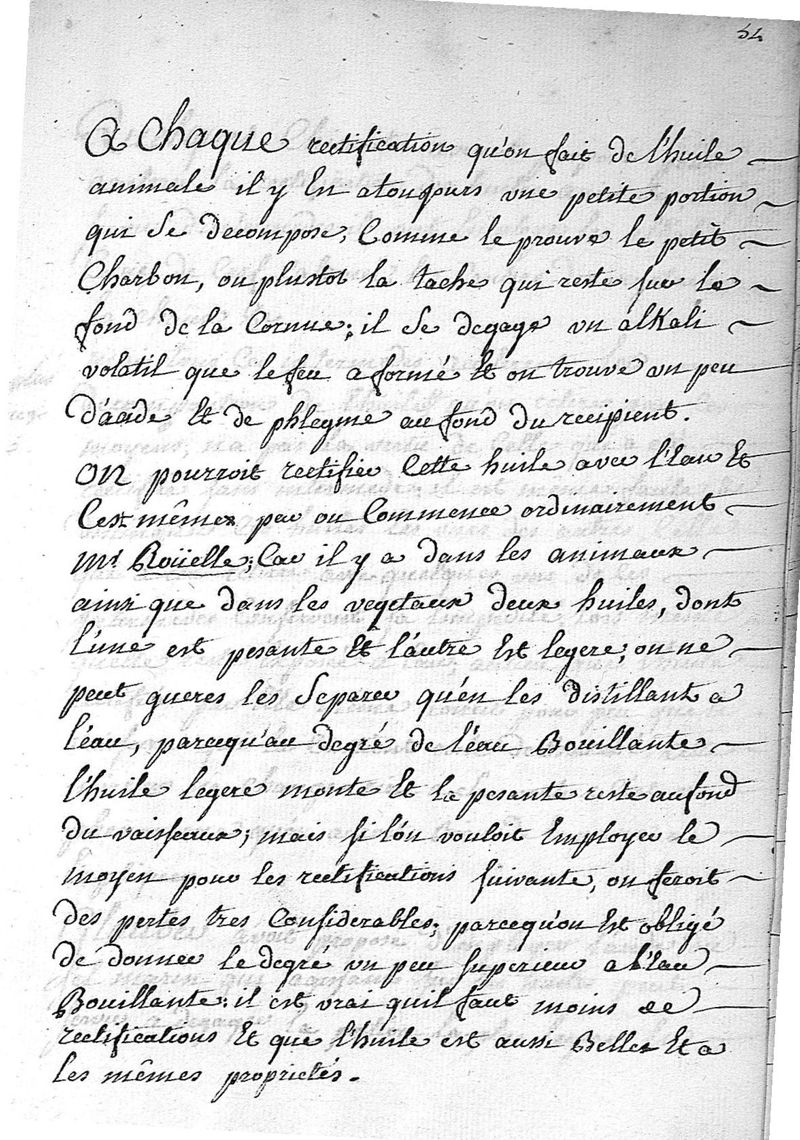 54
A Chaque rectification qu'on fait de l'huile
animale il y En atoujours vne petite portion
qui se decompose, Comme le prouve le petit
Charbon, ou plustot la tache qui reste sur le
fond de la Cornue; il se degage vn alKali
volatil que le feu a formé Et on trouve vn peu
d'acide Et de phlegme au fond du recipient.
ON pourroit rectifier Cette huile avec l'Eau Et
C'est même par ou Commence ordinairement
Mr. Roüelle; Car il y a dans les animaux
ainsi que dans les vegetaux deux huiles, dont
l'une est pesante Et l'autre Est legere; on ne
peut gueres les Separer qu'en les distillant a
l'éau, parcequ'au degré de l'éau Bouillante
l'huile legere monte Et la pesante reste au fond
du vaisseaux; mais si l'on vouloit Employer le
moyen pour les rectifications suivante, on feroit
des pertes tres Considerables; parcequ'on Est obligé
de donner le degre vn peu superieur a l'Eau
Bouillante: il est vrai quil faut moins de
rectifications Et que l'huile est aussi Belle Et a
les mêmes proprietés.